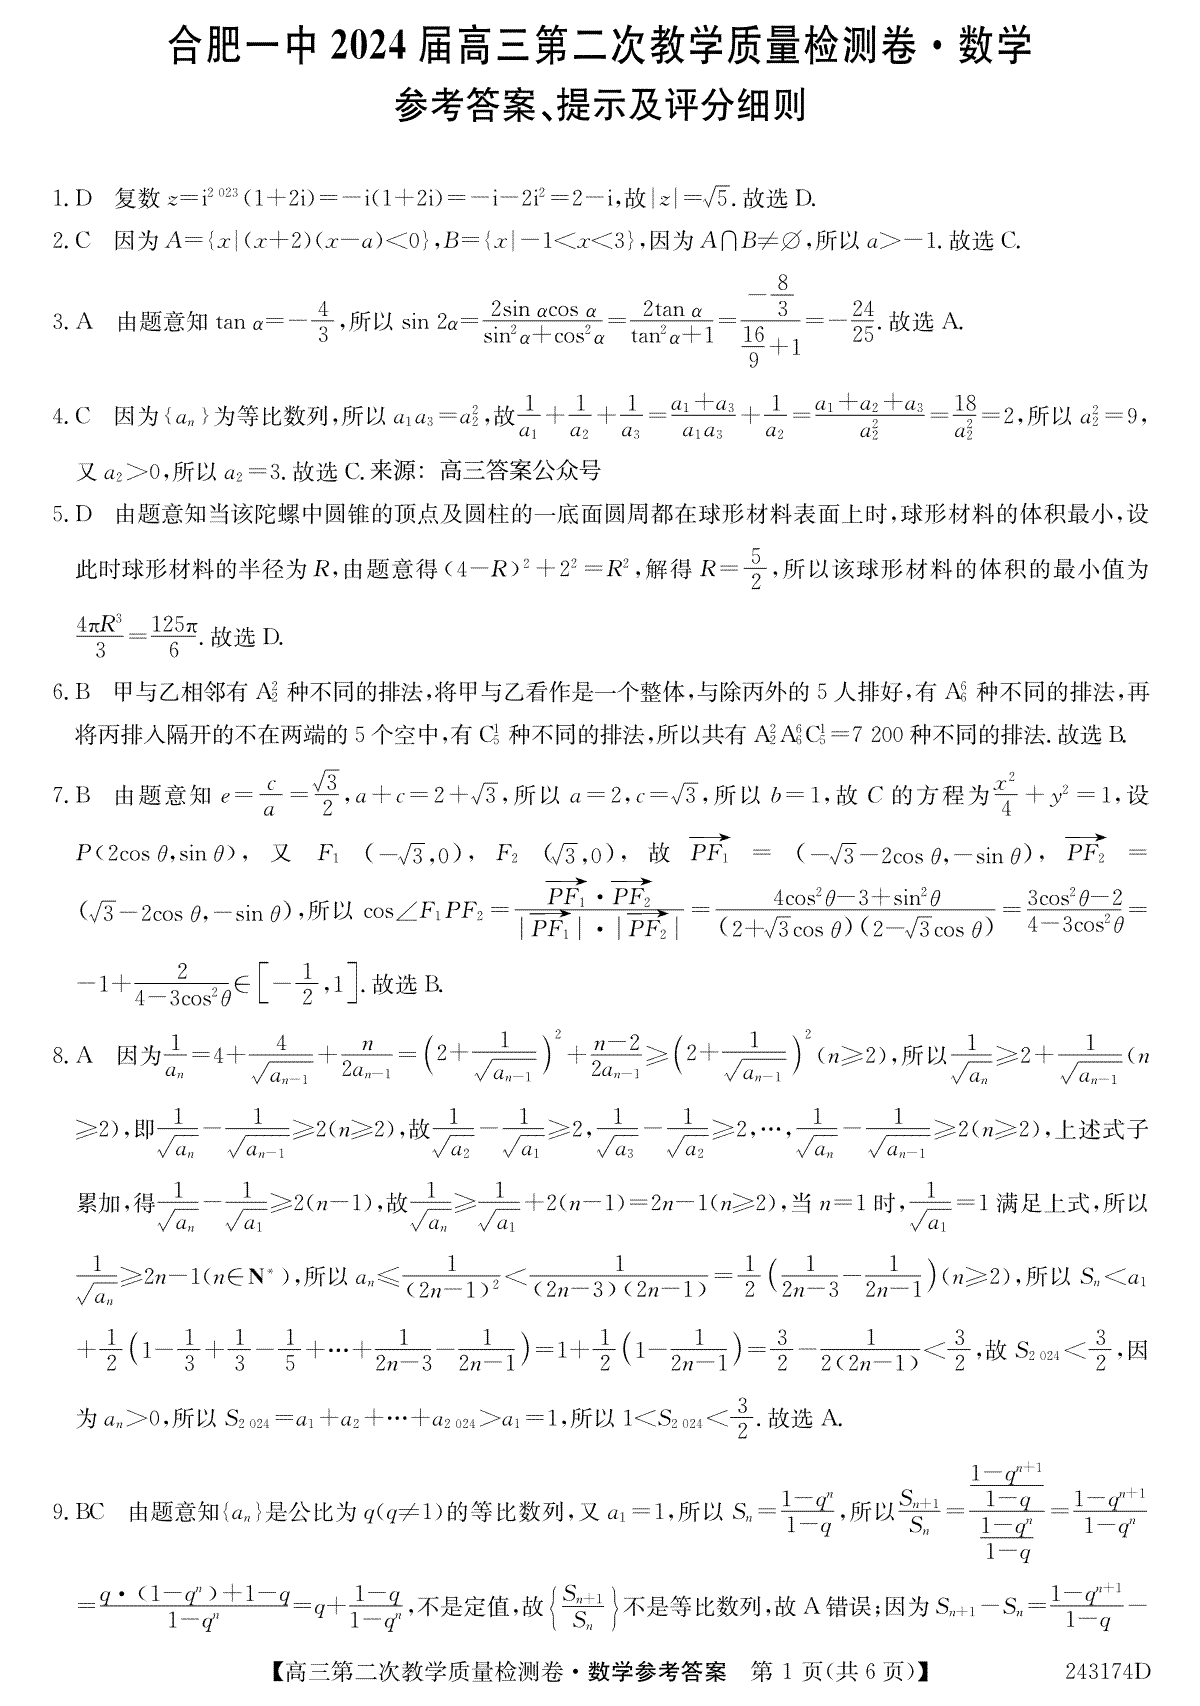 合肥一中 2024 届高三第二次教学质量检测卷·数学
参考答案、提示及评分细则
1. D 复数 z=i^{2 023}(1+2i)=-i(1+2i)=-i-2i²=2-i,故|z|=√5. 故选 D.
2. C 因为 A={x|(x+2)(x-a)<0},B={x|-1<x<3},因为 A∩B≠∅,所以 a>-1. 故选 C.
3. A 由题意知 tan α=-4/3,所以 sin 2α=(2sin αcos α)/(sin²α+cos²α)=(2tan α)/(tan²α+1)=(-8/3)/(16/9+1)=-24/25. 故选 A.
4. C 因为{a_n}为等比数列,所以 a₁a₃=a₂²,故 1/a₁+1/a₂+1/a₃=(a₁+a₃)/(a₁a₃)+1/a₂=(a₁+a₂+a₃)/a₂²=18/a₂²=2,所以 a₂²=9,
又 a₂>0,所以 a₂=3. 故选 C. 来源: 高三答案公众号
5. D 由题意知当该陀螺中圆锥的顶点及圆柱的一底面圆周都在球形材料表面上时,球形材料的体积最小,设
此时球形材料的半径为 R,由题意得(4-R)²+2²=R²,解得 R=5/2,所以该球形材料的体积的最小值为
4πR³/3=125π/6. 故选 D.
6. B 甲与乙相邻有 A₂² 种不同的排法,将甲与乙看作是一个整体,与除丙外的 5 人排好,有 A₆⁶ 种不同的排法,再
将丙排入隔开的不在两端的 5 个空中,有 C₅¹ 种不同的排法,所以共有 A₂²A₆⁶C₅¹=7 200 种不同的排法. 故选 B.
7. B 由题意知 e=c/a=√3/2,a+c=2+√3,所以 a=2,c=√3,所以 b=1,故 C 的方程为 x²/4+y²=1,设
P(2cos θ,sin θ), 又 F₁ (-√3,0), F₂ (√3,0), 故 \overrightarrow{PF₁} = (-√3-2cos θ,-sin θ), \overrightarrow{PF₂} =
(√3-2cos θ,-sin θ),所以 cos∠F₁PF₂=(\overrightarrow{PF₁}·\overrightarrow{PF₂})/(|\overrightarrow{PF₁}|·|\overrightarrow{PF₂}|)=(4cos²θ-3+sin²θ)/((2+√3cos θ)(2-√3cos θ))=(3cos²θ-2)/(4-3cos²θ)=
-1+2/(4-3cos²θ)∈[-1/2,1]. 故选 B.
8. A 因为 1/a_n=4+4/√a_{n-1}+n/(2a_{n-1})=(2+1/√a_{n-1})²+(n-2)/(2a_{n-1})≥(2+1/√a_{n-1})²(n≥2),所以 1/√a_n≥2+1/√a_{n-1}(n
≥2),即 1/√a_n-1/√a_{n-1}≥2(n≥2),故 1/√a₂-1/√a₁≥2,1/√a₃-1/√a₂≥2,…,1/√a_n-1/√a_{n-1}≥2(n≥2),上述式子
累加,得 1/√a_n-1/√a₁≥2(n-1),故 1/√a_n≥1/√a₁+2(n-1)=2n-1(n≥2),当 n=1 时,1/√a₁=1 满足上式,所以
1/√a_n≥2n-1(n∈N*),所以 a_n≤1/(2n-1)²<1/((2n-3)(2n-1))=1/2(1/(2n-3)-1/(2n-1))(n≥2),所以 S_n<a₁
+1/2(1-1/3+1/3-1/5+…+1/(2n-3)-1/(2n-1))=1+1/2(1-1/(2n-1))=3/2-1/(2(2n-1))<3/2,故 S_{2 024}<3/2,因
为 a_n>0,所以 S_{2 024}=a₁+a₂+…+a_{2 024}>a₁=1,所以 1<S_{2 024}<3/2. 故选 A.
9. BC 由题意知{a_n}是公比为 q(q≠1)的等比数列,又 a₁=1,所以 S_n=(1-q^n)/(1-q),所以 S_{n+1}/S_n=((1-q^{n+1})/(1-q))/((1-q^n)/(1-q))=(1-q^{n+1})/(1-q^n)
=(q·(1-q^n)+1-q)/(1-q^n)=q+(1-q)/(1-q^n),不是定值,故{S_{n+1}/S_n}不是等比数列,故 A 错误;因为 S_{n+1}-S_n=(1-q^{n+1})/(1-q)-
【高三第二次教学质量检测卷·数学参考答案 第 1 页(共 6 页)】 243174D